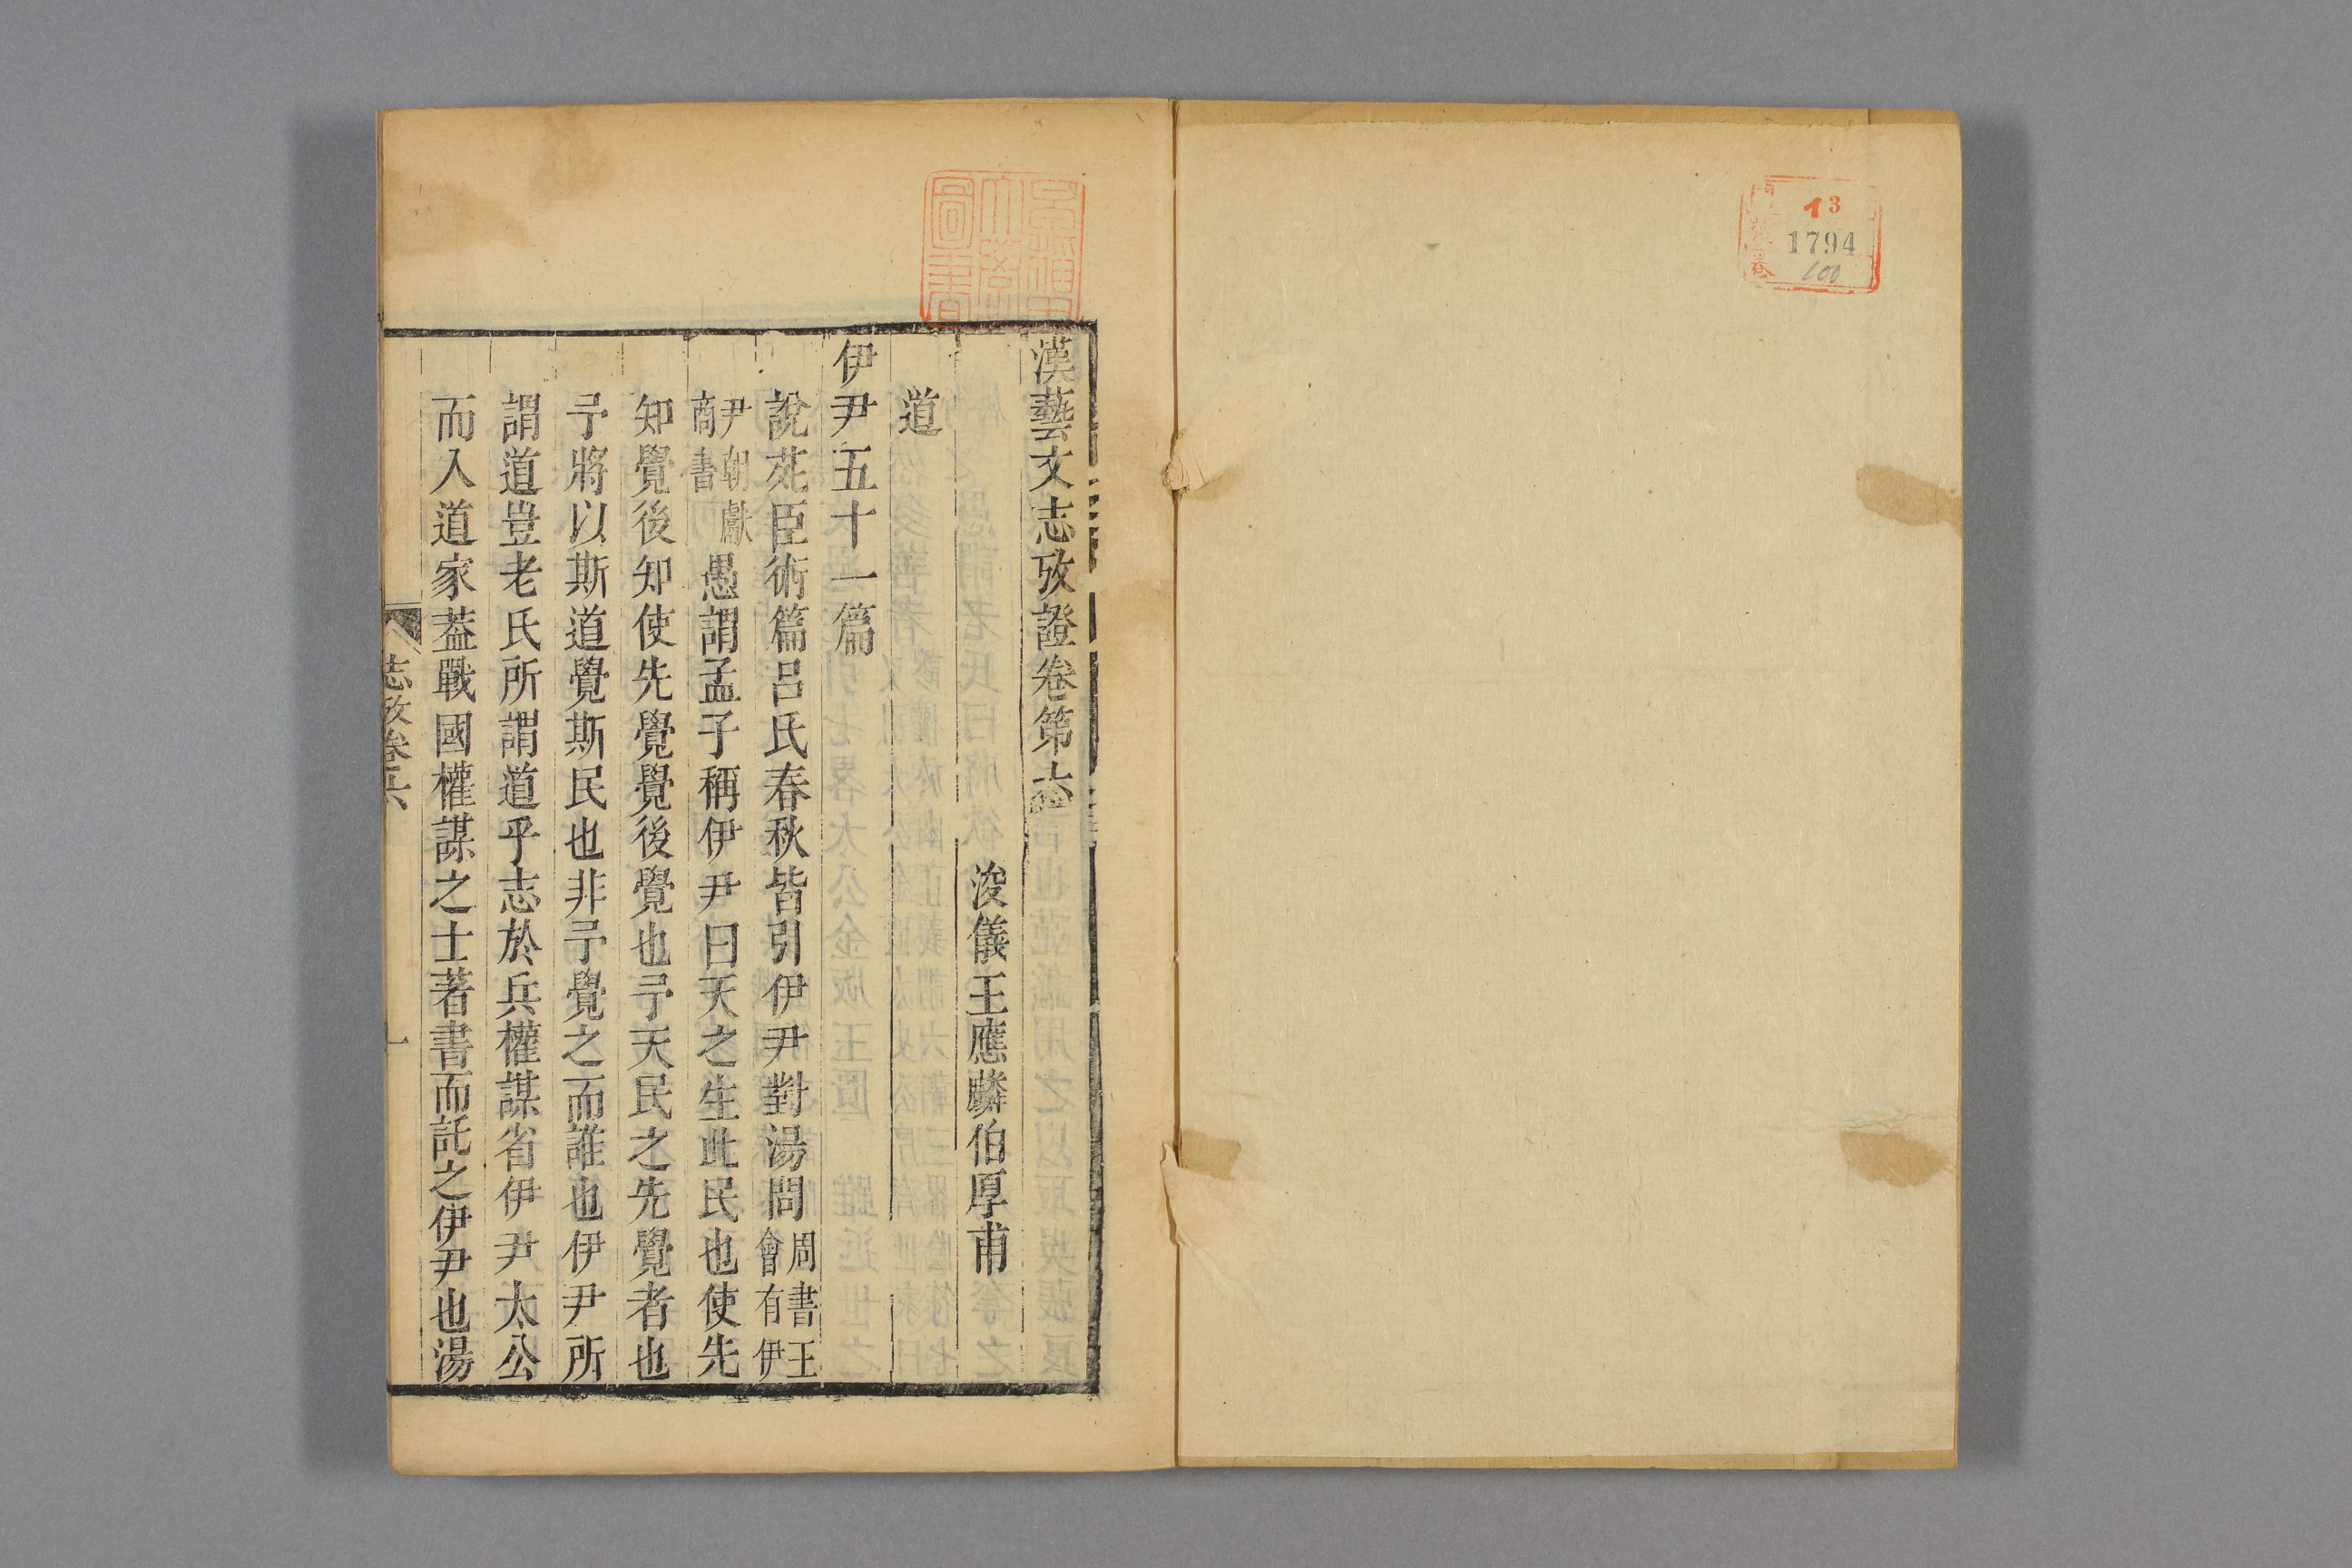 13
1794
100
漢藝文志攷證卷第六
浚儀王應麟伯厚甫
道
伊尹五十一篇
說苑臣術篇呂氏春秋皆引伊尹對湯問周書王會有伊
尹朝獻商書愚謂孟子稱伊尹曰天之生此民也使先
知覺後知使先覺覺後覺也予天民之先覺者也
予將以斯道覺斯民也非予覺之而誰也伊尹所
謂道豈老氏所謂道乎志於兵權謀省伊尹太公
而入道家葢戰國權謀之士著書而託之伊尹也湯
志攷卷六
一